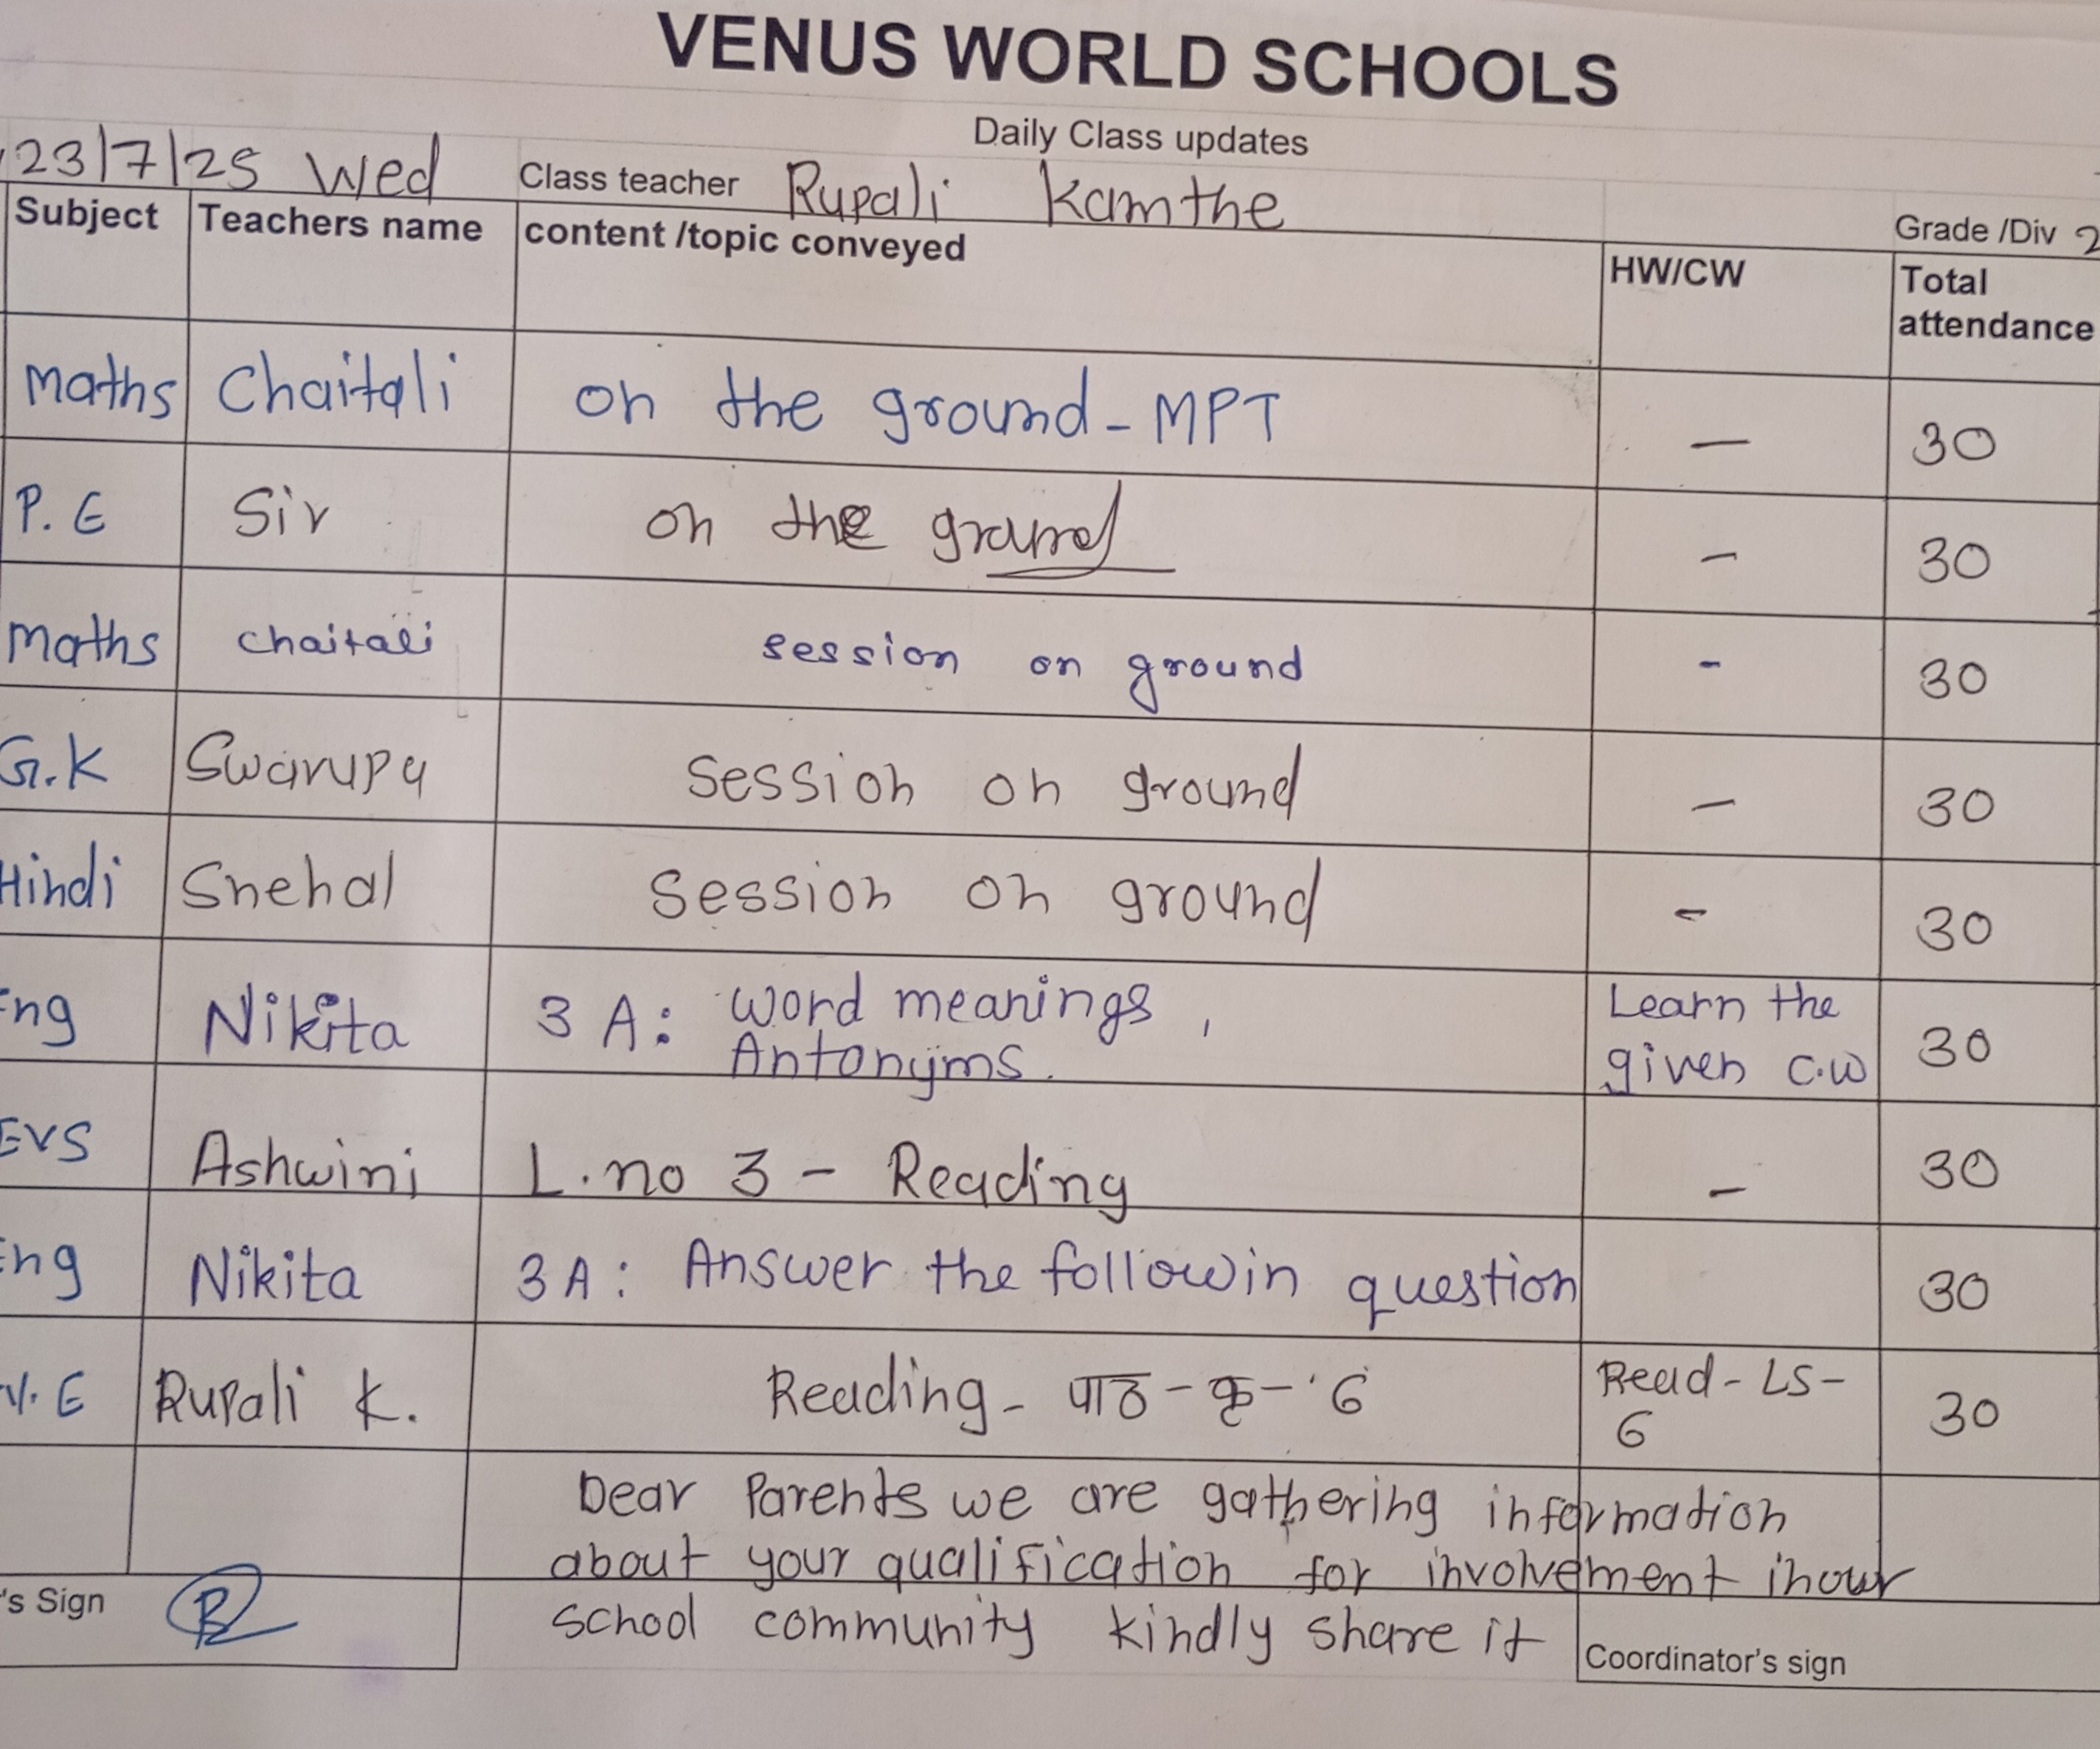 VENUS WORLD SCHOOLS
Daily Class updates
23/7/25 Wed Class teacher Rupali Kamthe Grade /Div 2
Subject Teachers name content /topic conveyed HW/CW Total attendance
Maths Chaitali on the ground - MPT — 30
P. E Sir on the ground — 30
Maths chaitali session on ground - 30
G.K Swarupa Session on ground — 30
Hindi Snehal Session on ground - 30
Eng Nikita 3 A: word meanings , Learn the 30
Antonyms. given c.w
EVS Ashwini L. no 3 - Reading — 30
Eng Nikita 3 A: Answer the followin question 30
V. E Rupali K. Reading - पाठ - क्र - 6 Read - LS - 30
6
Dear Parents we are gathering information
about your qualification for involvement in our
's Sign school community kindly share it Coordinator's sign